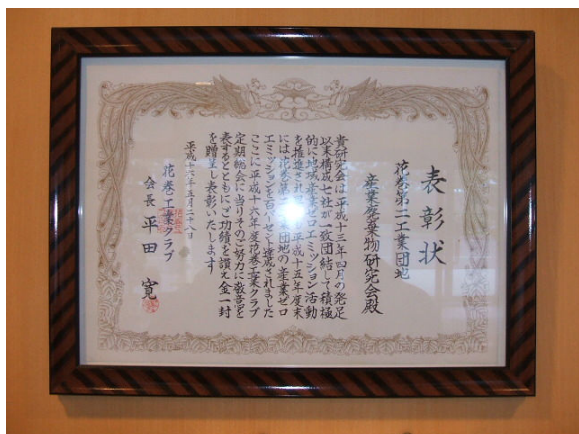 表彰状
花巻第二工業団地
産業廃棄物研究会殿
貴研究会は平成十三年四月の発足
以来構成七社が一致団結して積極
的に地域産業ゼロエミッション活動
を推進され平成十五年度末
には花巻第二工業団地の産業ゼロ
エミッションを百パーセント達成されました
ここに平成十六年度花巻工業クラブ
定期総会に当りそのご努力に敬意を
表するとともにご功績を讃え金一封
を贈呈し表彰いたします
平成十六年五月二十八日
花巻工業クラブ
会長 平田 寛